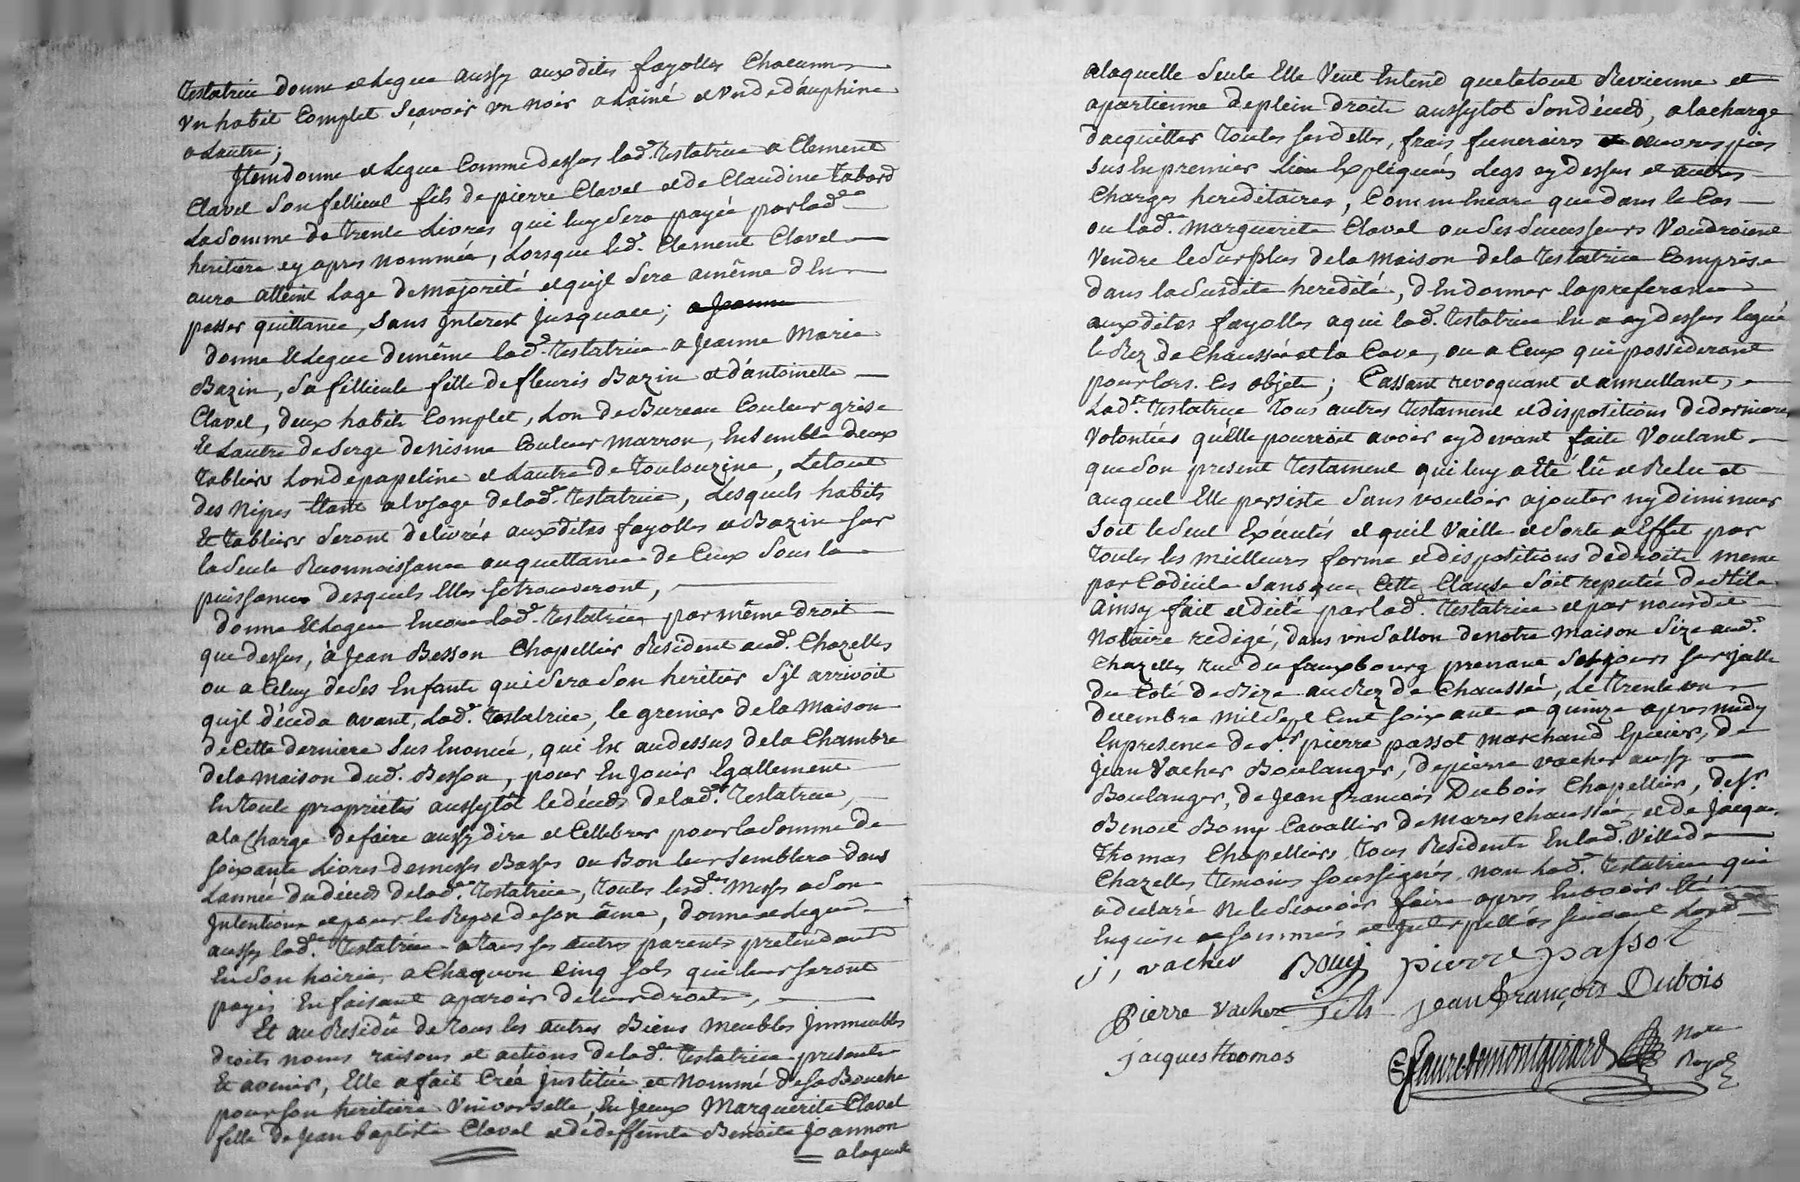 testatrice donne et legue aussy auxdites fayolles Chacune
un habit Complet Sçavoir un noir a lainé et un de dauphine
a lautre;
Item donne et legue Comme dessus lad.e testatrice a Clement
Clavel Son fellieul fils de pierre Clavel et de Claudine tabard
La Somme de trente Livres qui luy Sera payée par lad.e
heritiere cy apres nommée, Lorsque led. Clement Clavel
aura atteint Lage de majorité et quil Sera a même d'En
passer quittance, Sans Interest Jusqua ce; a Jeanne
donne et legue de même lad.e testatrice a Jeanne Marie
Bazin, Sa fillieule fille de fleuris Bazin et d'antoinette
Clavel, deux habits Complet, Lon de Bureau Couleur grise
et Lautre de Serge de nisme Couleur marron, Ensemble deux
tabliers Lon de papeline et Lautre de toulouzine, Le tout
des nipes Etant a lusage de lad.e testatrice, Lesquels habits
Et tabliers Seront delivrés auxdites fayolles et Bazin Sur
la Seule Reconnoissance ou quettance de Ceux Sous la
puissance desquels Elles Se trouveront,
donne et legue Encore lad.e testatrice par même droit
que dessus, à Jean Besson Chapellier Resident aud. Chazelles
ou a Celuy de Ses Enfants qui Sera Son heritier S'il arrivoit
qu'il décéda avant Lad.e testatrice, le grenier de la maison
de Cette derniere Sus Enoncée, qui Est au dessus de la Chambre
de la maison dud. Besson, pour En Jouir Egallement
En toute proprieté aussytôt le décéds de lad.e testatrice,
a la Charge de faire aussy dire et Cellebrer pour la Somme de
soixante Livres de messes Basses ou Bon leur Semblera dans
Lannée du décéds de lad.e testatrice, toutes lesd.es messes a Son
Intention et pour le Repos de Son âme, donne et legue
aussy lad.e testatrice a tous Ses autres parents pretendants
En Son hoirie, a Chaquun Cinq Sols qui leur Seront
payés En faisant aparoir de leur droits,
Et au Residû de tous les autres Biens meubles Immeubles
droits noms raisons et actions de lad.e testatrice presents
Et avenir, Elle a fait Créé Instituée et Nommé de Sa Bouche
pour Son heritiere Universelle, Marguerite Clavel
fille de Jean Baptiste Clavel et de deffunte Benoite Joannon
a laquelle
a laquelle Seule Elle Veut Entend que le tout Revienne et
apartienne de plein droit aussytôt Son décéds, a la charge
d'acquitter toutes Ses dettes, frais funeraires et œuvres pies
Sus En premier lieu Expliqués, Legs cy dessus et autres
Charges hereditaires, Comm'Encore que dans le Cas
ou lad.e Marguerite Clavel ou Ses Successeurs Voudroient
Vendre le Surplus de la maison de la testatrice Comprise
dans la Susdite heredité, d'En donner la preference
aux dites fayolles a qui lad.e testatrice En a cy dessus legué
le Rez de Chaussée et la Cave, ou a Ceux qui possederont
pour lors Ces objets; Cassant revoquant et annullant,
Lad.e testatrice tous autres testament et dispositions de derniere
volontées qu'Elle pourroit avoir cy devant faite Voulant
que Son present testament qui luy a Eté lû et Relu et
auquel Elle persiste Sans vouloir ajouter ny diminuer
Soit le Seul Exécutés et quil vaille et Sorte a Effet par
toutes les meilleurs forme et dispositions de droits meme
par Codicile Sans que Cette Clause Soit reputée de Stile
Ainsy fait et dicté par lad.e testatrice et par nous dit
Notaire redigé, dans un Sallon de notre maison Size aud.
Chazelles rue du fauxbourg prenant Ses jours Sur
du Coté de Bize au Rez de Chaussée, Le trente un
decembre mil Sept Cent Soixante et quinze apres midy
En presence de S.r pierre passot marchand Epicier, de
Jean Vacher Boulanger, de pierre vacher aussy
Boulanger, de Jean françois Dubois Chapellier, de S.r
Benoit Bony Cavallier de marechaussée, et de Jacque
Thomas Chapelliers tous Residents En lad.e Ville de
Chazelles temoins Soussignés, non lad.e testatrice qui
a declaré ne le Scavoir faire apres En avoir Eté
Enquise et Sommée et Suivant Lord.
j, vacher Bony pierre passot
Pierre vacher fils jean françois Dubois
jacques thomas
Faure de montgirard No.re
Royal